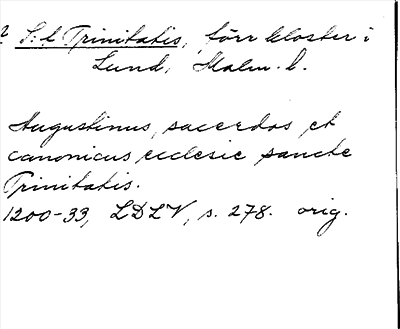 S:t Trinitatis, förr kloster i
Lund, Malm. l.
Augustinus, sacerdos et
canonicus ecclesie sancte
Trinitatis.
1200-33, LDLV, s. 278. orig.